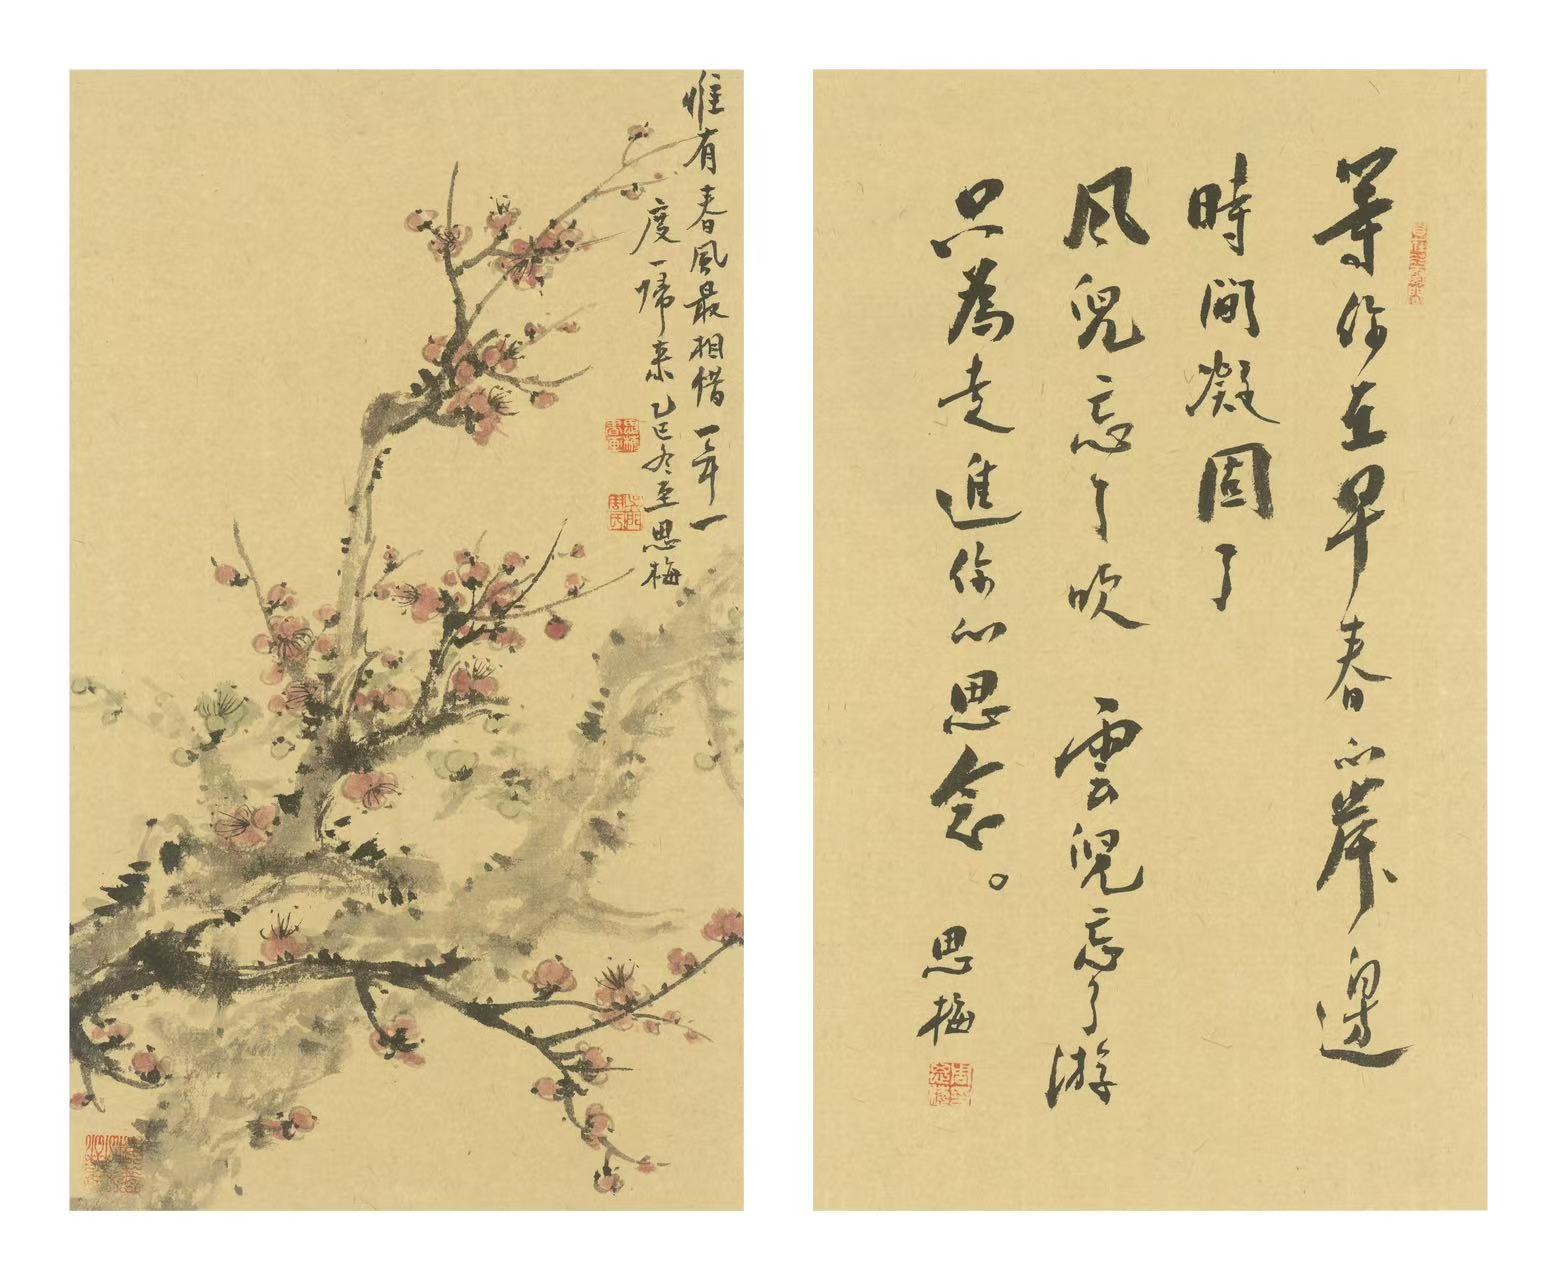 惟有春風最相惜一年一
度一歸来乙巳冬至思梅
等你在早春的岸邊
時間凝固了
风兒忘了吹 雲兒忘了游
只為走進你的思念。
思梅